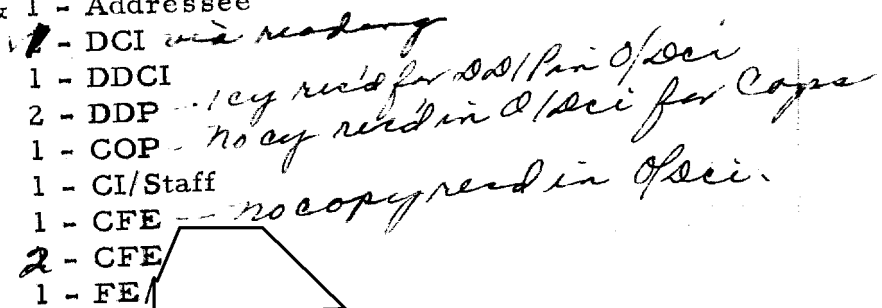 & 1 - Addressee
1 - DCI via reading
1 - DDCI
2 - DDP - 1 cy rec'd for DD/P in O/DCI
1 - COP - no cy rec'd in O/DCI for Cops
1 - CI/Staff
1 - CFE -- no copy recd in O/DCI.
2 - CFE
1 - FE/